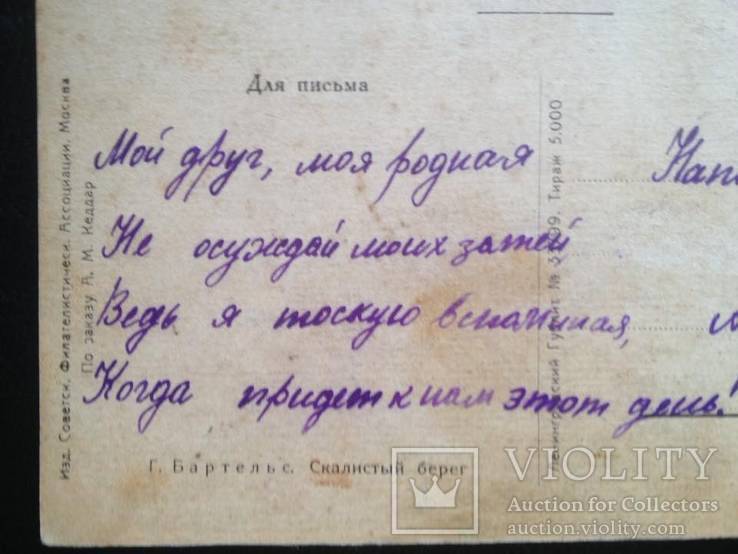 Для письма
Мой друг, моя родная
Не осуждай моих затей,
Ведь я тоскую вспоминая,
Когда придет к нам этот день!
Г. Бартельс. Скалистый берег
Изд. Советск. Филателистическ. Ассоциации. Москва
По заказу А. М. Кеддар
Тираж 5.000
VIOLITY
Auction for Collectors
auction.violity.com